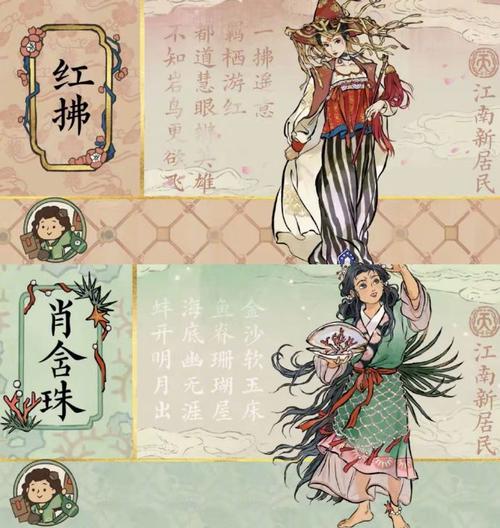 红拂
一拂遥
羁栖游红
都道慧眼 雄
不知岩鸟更欲飞
江南新居民
肖含珠
金沙软玉床
鱼脊珊瑚屋
海底幽无涯
蚌开明月出
江南新居民